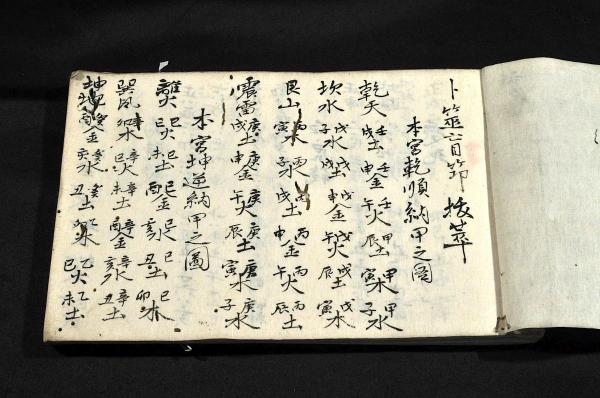 卜筮盲節 拔萃
本宮乾順納甲之圖
乾天 壬戌土 壬申金 壬午火 甲辰土 甲寅木 甲子水
坎水 戊子水 戊戌土 戊申金 戊午火 戊辰土 戊寅木
艮山 丙寅木 丙子水 丙戌土 丙申金 丙午火 丙辰土
震雷 庚戌土 庚申金 庚午火 庚辰土 庚寅木 庚子水
本宮坤逆納甲之圖
離火 己巳火 己未土 己酉金 己亥水 己丑土 己卯木
巽風 辛卯木 辛巳火 辛未土 辛酉金 辛亥水 辛丑土
坤地 癸酉金 癸亥水 癸丑土 乙卯木 乙巳火 乙未土